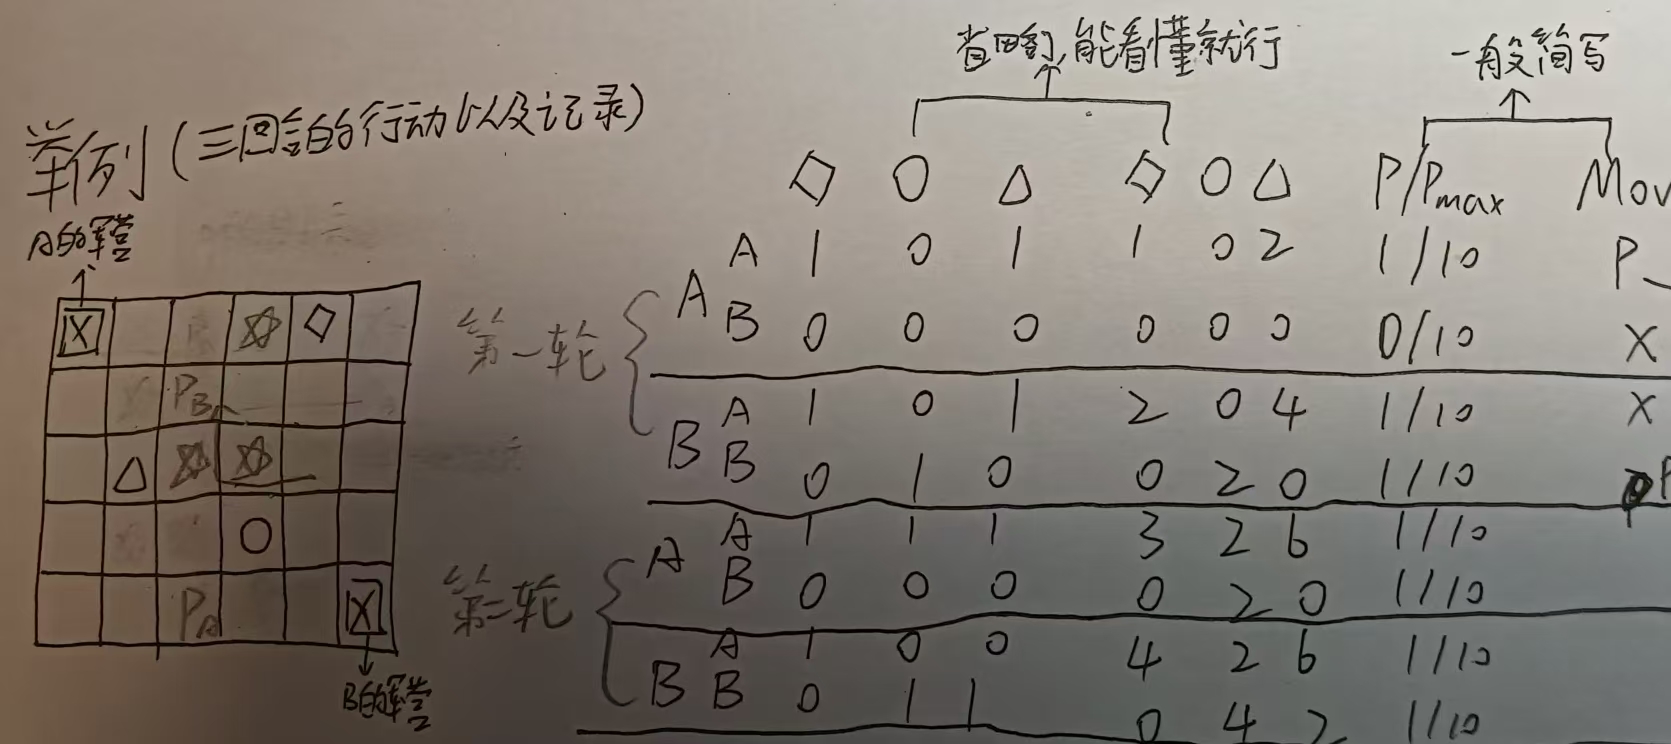 省略,能看懂就行
一般简写
举例(三回合的行动以及记录)
◇ ○ △ ◇ ○ △ P/Pmax Mov
A的军营
第一轮
A A 1 0 1 1 0 2 1/10 P
B 0 0 0 0 0 0 0/10 X
B A 1 0 1 2 0 4 1/10 X
B 0 1 0 0 2 0 1/10
第二轮
A A 1 1 1 3 2 6 1/10
B 0 0 0 0 2 0 1/10
B A 1 0 0 4 2 6 1/10
B 0 1 1 0 4 2 1/10
X ◇
PB
△
○
PA X
B的军营